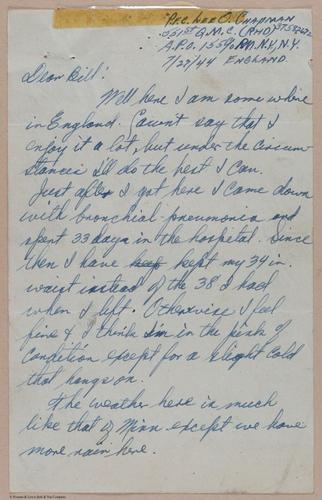 Pfc. Lee O. Chapman
551st Q.M.C. (RHD)
A.P.O. 15596 P.M. N.Y., N.Y.
7/27/44 ENGLAND
Dear Bill:
Well here I am some where
in England. Cawn't say that I
enjoy it a lot, but under the circum-
stances I'll do the best I can.
Just after I got here I came down
with bronchial-pneumonia and
spent 33 days in the hospital. Since
then I have kept my 34 in.
waist instead of the 38 I had
when I left. Otherwise I feel
fine & I think I'm in the pink of
condition except for a slight cold
that hangs on.
The weather here is much
like that of Minn except we have
more rain here.